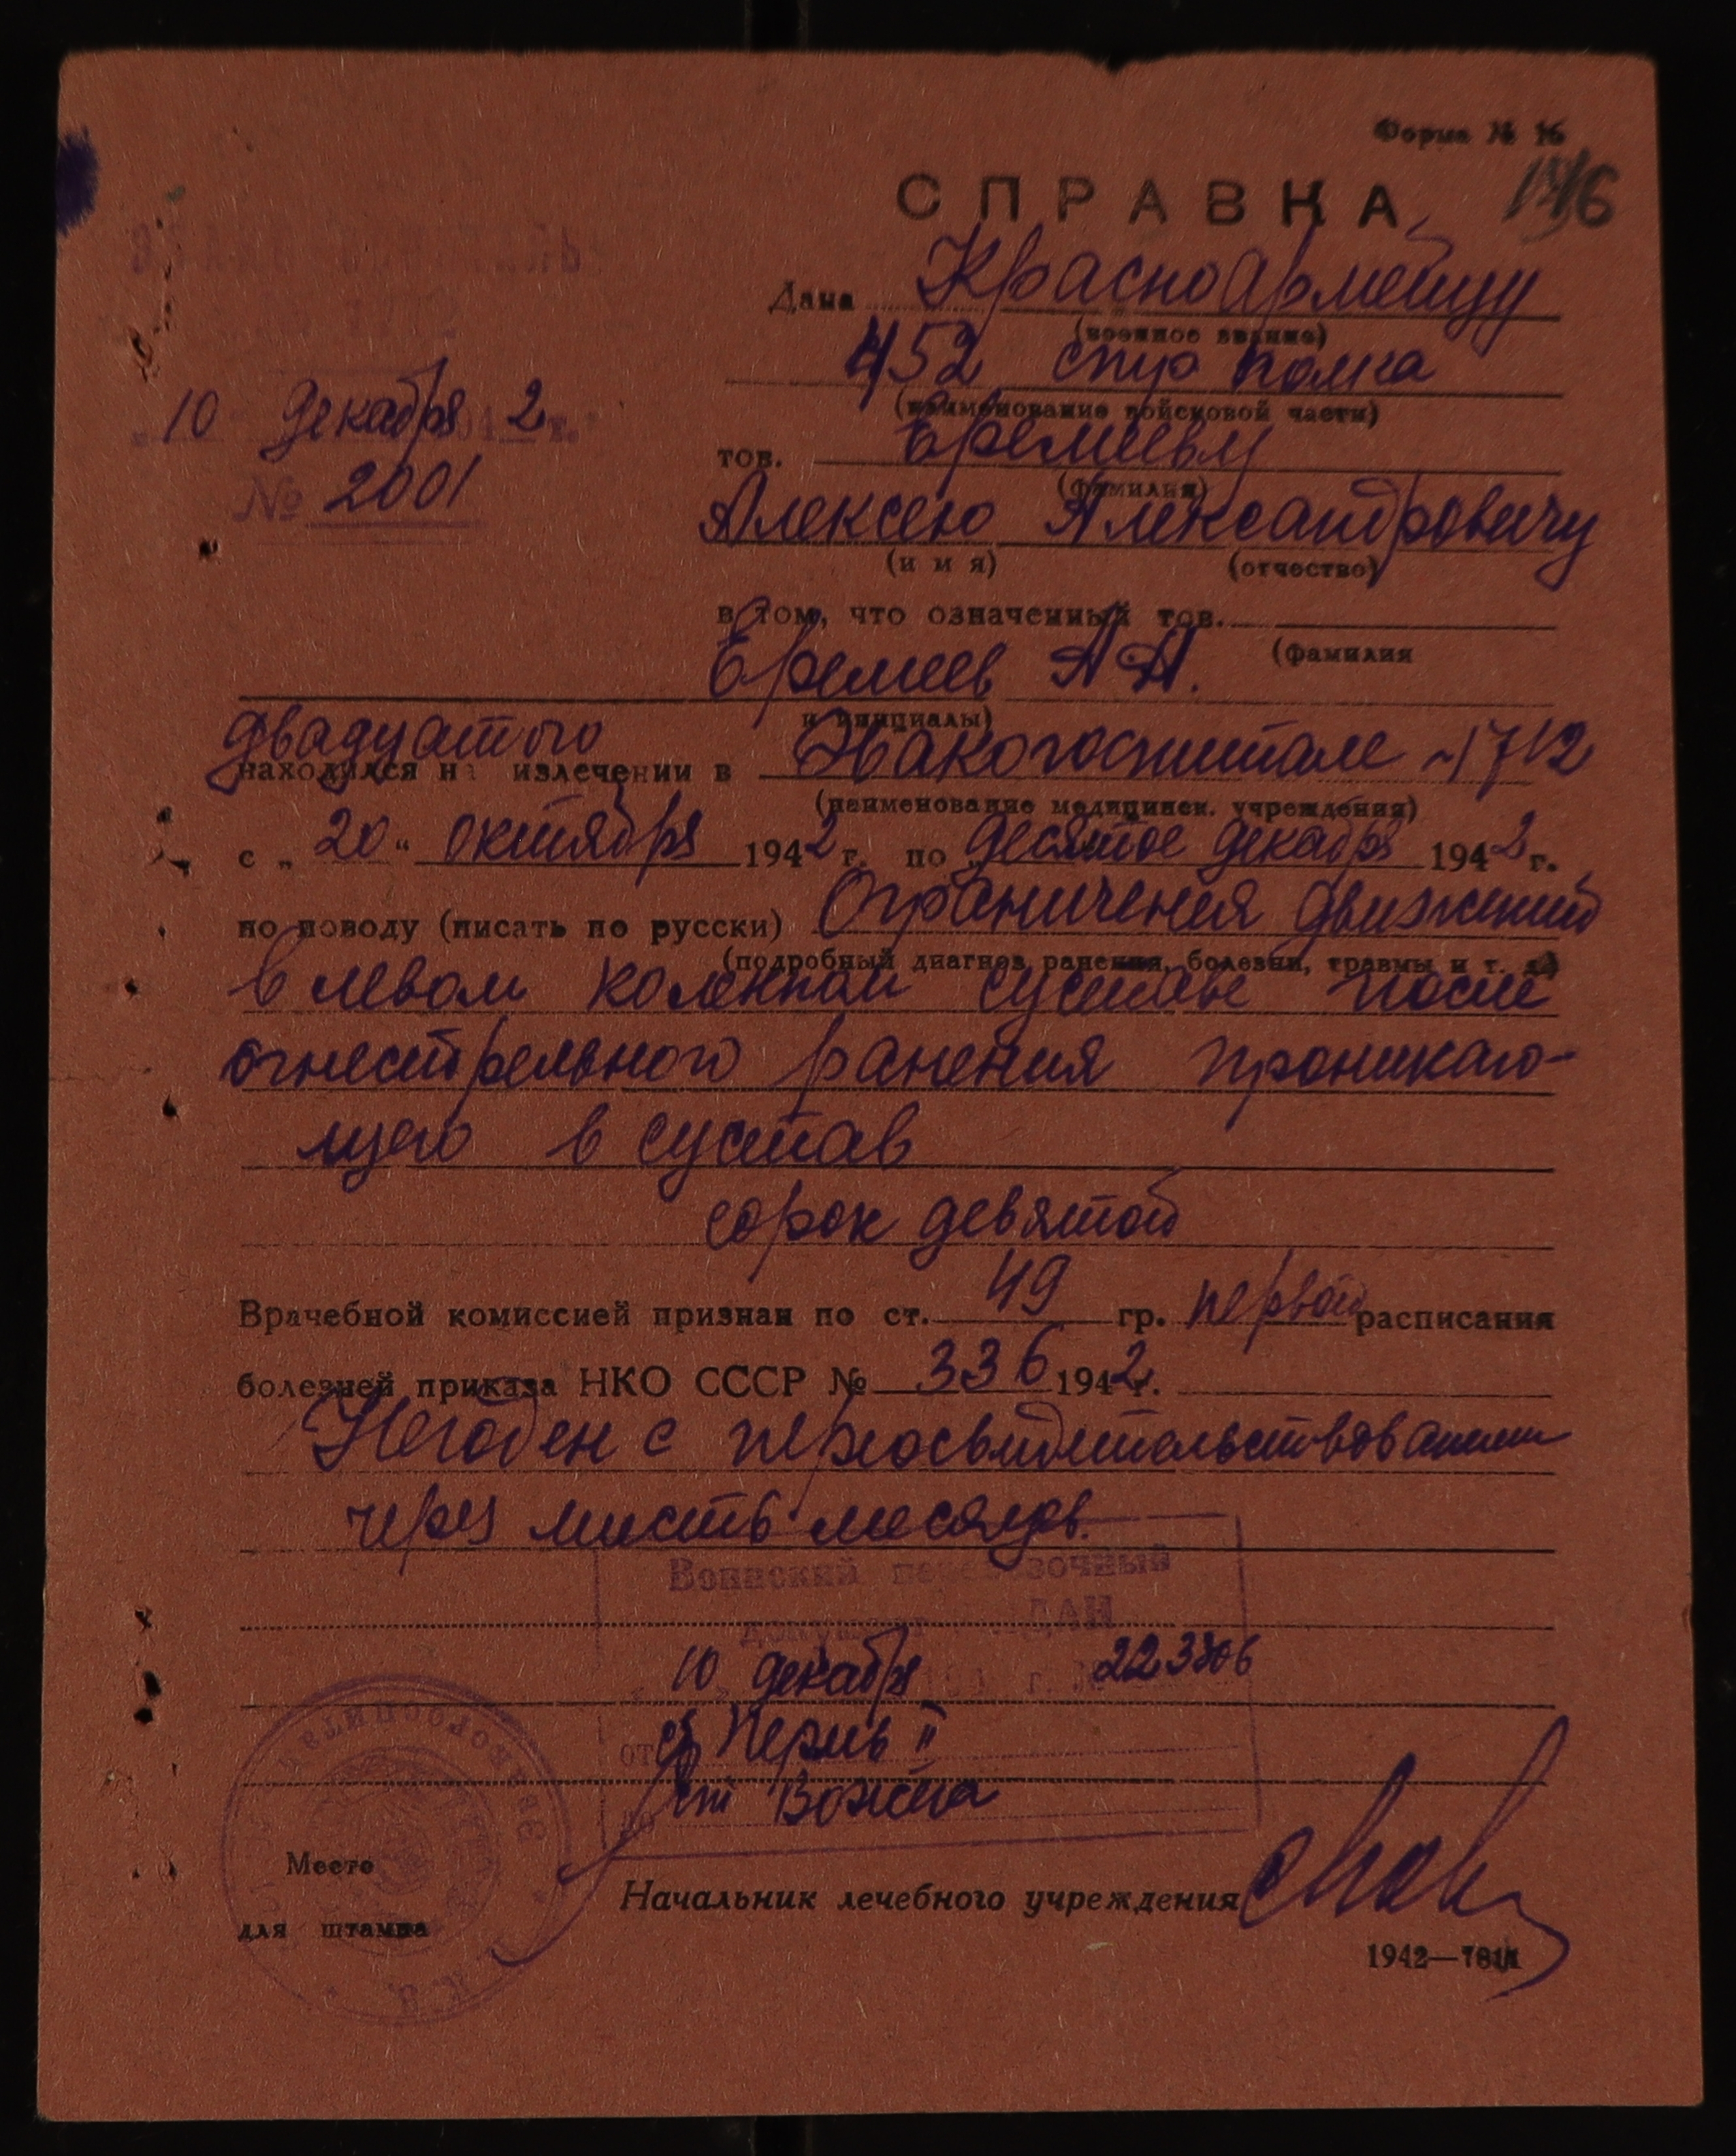 Форма № 16
146
СПРАВКА
Дана Красноармейцу
(военное звание)
452 стр полка
(наименование войсковой части)
10 декабря 1942 г.
тов. Еремееву
(фамилия)
№ 2001
Алексею Александровичу
(и м я) (отчество)
в том, что означенный тов.
Еремеев А А. (фамилия
и инициалы)
двадцатого
находился на излечении в Эвакогоспитале 1712
(наименование медицинск. учреждения)
с „20“ октября 1942 г. по „десятое декабря 1942 г.
по поводу (писать по русски) Ограничения движений
(подробный диагноз ранения, болезни, травмы и т. д.)
в левом коленном суставе после
огнестрельного ранения проникаю-
щего в сустав
сорок девятой
Врачебной комиссией признан по ст. 49 гр. первой расписания
болезней приказа НКО СССР № 336 1942 г.
Негоден с переосвидетельствованием
через шесть месяцев.
Воинский перевозочный
документ ВЫДАН
10 декабря 194 г.
от ст Пермь II
до ст Вожега
Место
для штампа
Начальник лечебного учреждения